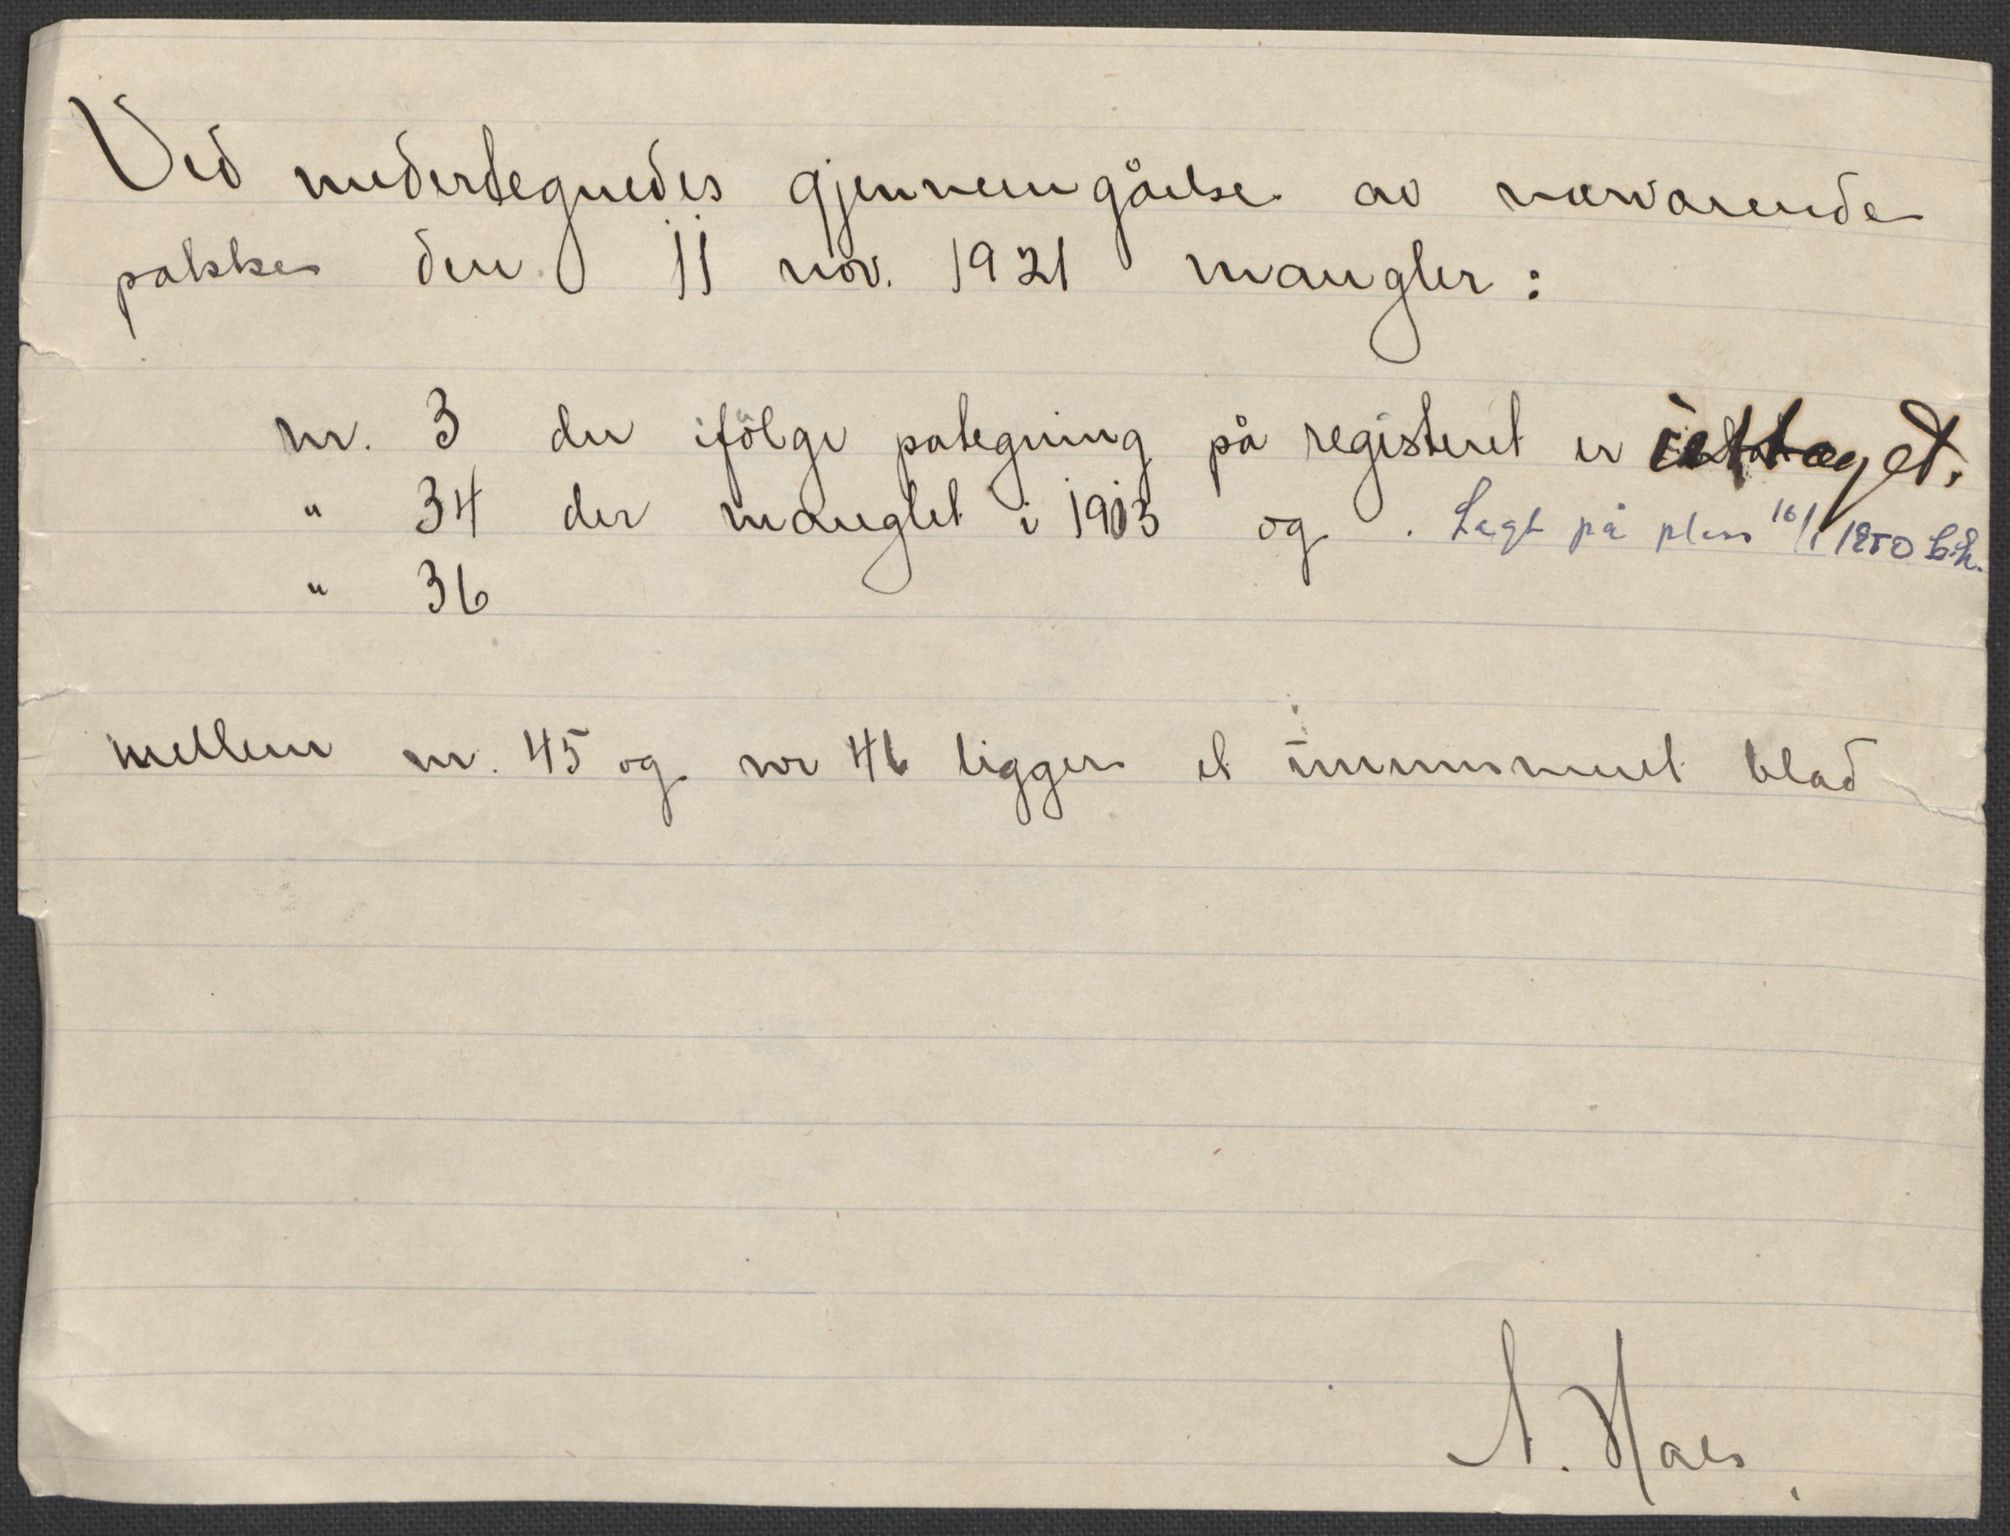 Ved undertegnedes gjennemgåelse av nærværende
pakke den 11 nov. 1921 mangler:
nr. 3 der ifölge pategning på registeret er
" 34 der manglet i 1913 og . Lagt på plass 16/1 1950
" 36
mellem nr. 45 og nr 46 ligger et unummeret blad
A. Næss